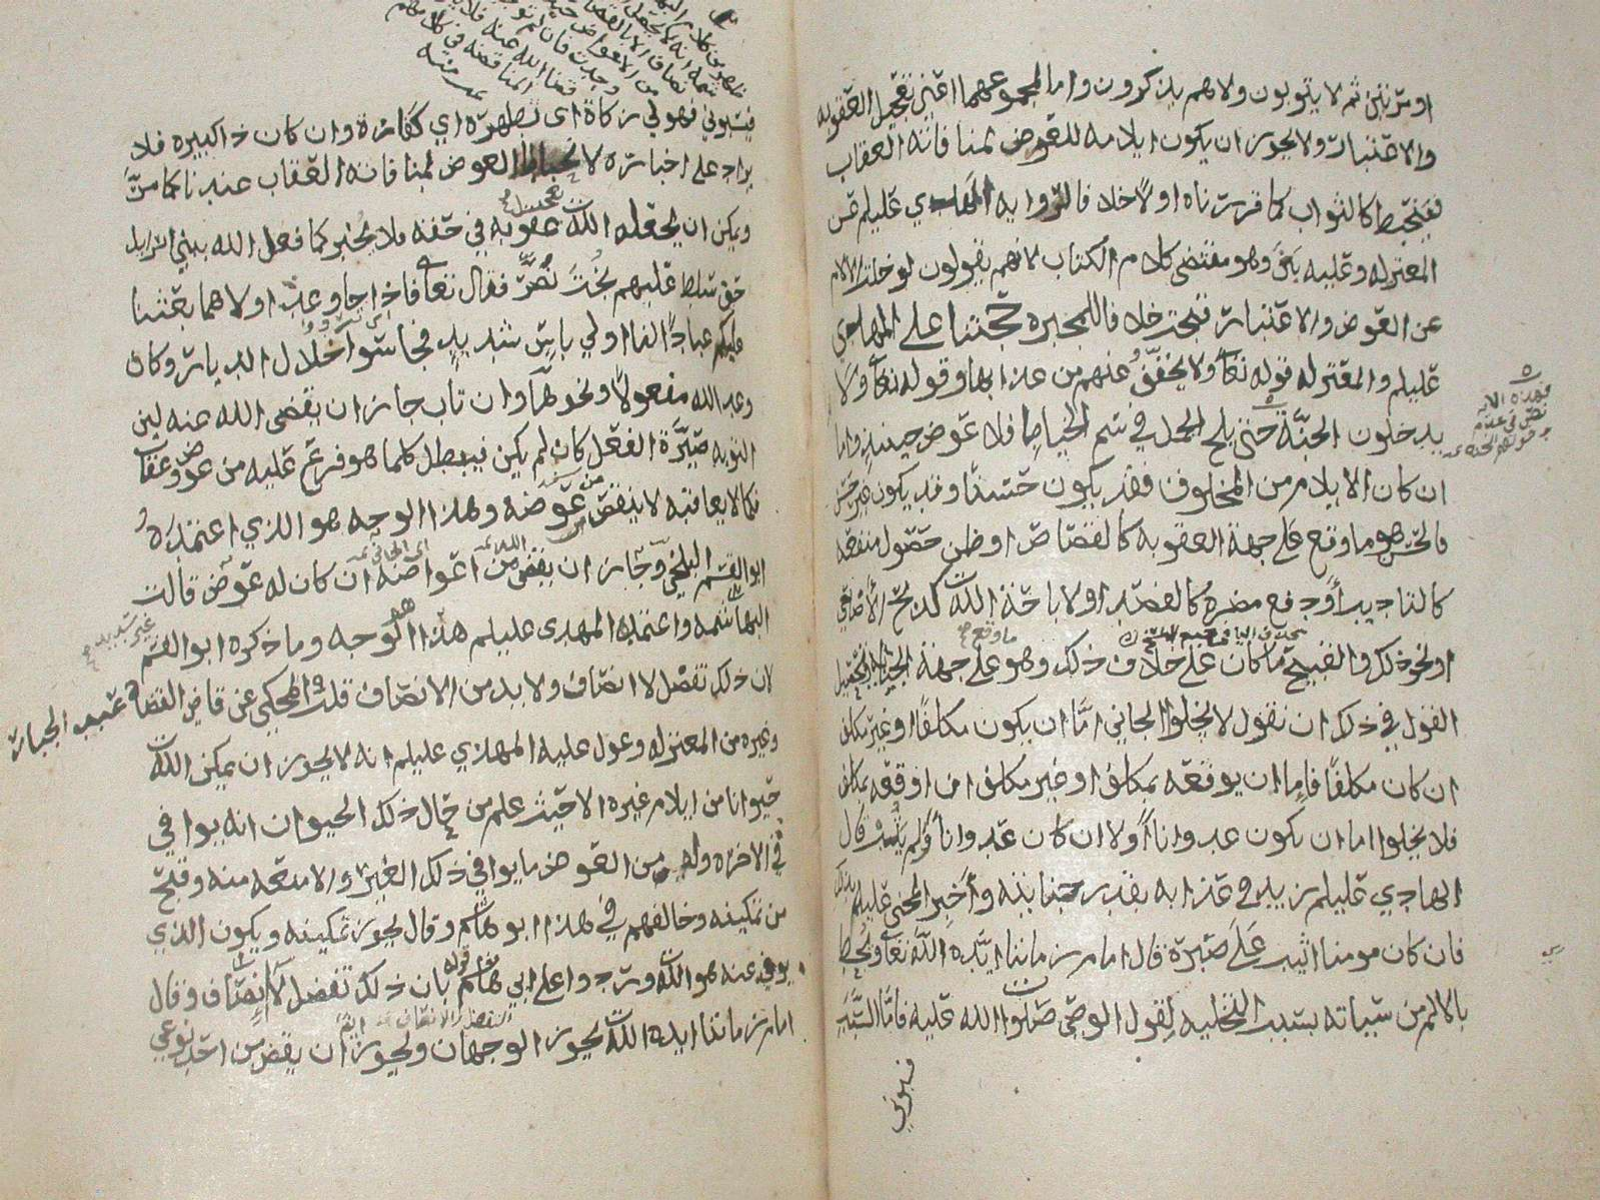 او مرتين ثم لا يتوبون ولا هم يذكرون واما لمجموعهما اعني تعجيل العقوبه
والاعتبار ولا يجوز ان يكون ايلامه للعوض لمنافاته العقاب
فينحبط كالثواب كما قررناه اولا خلاف الرواية المهدي عليلم عن
المعتزله وعليه بنى وهو مقتضى كلام الكتاب لانهم يقولون لو خلت الالام
عن العوض والاعتبار قبحت خلافا للمجبره حجتنا على المهدي
عليلم والمعتزله قوله تعا ولا يخفف عنهم من عذابها وقوله تعا ولا
يدخلون الجنة حتى يلج الجمل في سم الخياط فلا عوض حينئذ واما
ان كان الايلام من المخلوف فقد يكون حسنا وقد يكون غير حسن
فالحسن هو ما وقع على جهة العقوبه كالقصاص او ظن حصول منفعه
كالتاديب او دفع مضره كالفصد او لاباحة الله كذبح الأضاحي
او نحو ذلك والقبيح ما كان على خلاف ذلك وهو ما وقع على جهة الجناية
القول في ذلك ان نقول لا يخلوا الجاني اما ان يكون مكلفا او غير مكلف
ان كان مكلفا فاما ان يوقعه بمكلف او غير مكلف ان اوقعه بمكلف
فلا يخلوا اما ان يكون عدوانا اولا ان كان عدوانا ولم يتب قال
الهادي عليلم زيد في عذابه بقدر جنايته وأخبر المجني عليلم بذلك
فان كان مومنا اثيب على صبره قال امام زماننا ايده الله تعا ويحط
بالالم من سيئاته بسبب التخليه لقول الوصي صلوات الله عليه فاما السب
فسبوني
فهذه الايه
نص في عدم
دخولهم الجنه
فسبوني فهو لي زكاة اى تطهرة اي كفارة وان كان ذا كبيره فلا
يزاد على اخباره لانحباط العوض لمنافاته العقاب عندنا كما مر
ويمكن ان يجعله الله تعجيل عقوبه في حقه فلا يخبر كما فعل الله ببني اسرايل
حين سلط عليهم بخت نصر فقال تعا فاذا جا وعد اولاهما بعثنا
عليكم عبادا لنا اولي باس شديد فجاسوا خلال الديار وكان
وعدا لله مفعولا ونحوها وان تاب جاز ان يقضي الله عنه لين
التوبه صيرة الفعل كان لم يكن فيبطل كلما هو فرع عليه من عوض وعقاب
فكما لا يعاقبه لا ينقص من عوضه وهذا الوجه هو الذي اعتمده
ابو القسم البلخي وجاز ان يقضي من اعواضه ان كان له عوض قالت
البهاشمه واعتمد المهدى عليلم هذا الوجه وما ذكره ابو القسم غير سديد
لان ذلك تفضل لا انصاف ولا بد من الانصاف قلت والمحكي عن قاضي القضاة عبد الجبار
وغيره من المعتزله وعول عليه المهدي عليلم انه لا يجوز ان يمكن الله
حيوانا من ايلام غيره الا حيث علم من حال ذلك الحيوان انه يوافي
في الاخره وله من العوض ما يوافي ذلك الغير والا منعه منه وقبح
من تمكينه وخالفهم في هذا ابو هاشم وقال يجوز تمكينه ويكون الذي
يوفي عنه هو الله وردوا على ابي هاشم قوله بان ذلك تفضل لا انصاف وقال
امام زماننا ايده الله يجوز الوجهان ويجوز ان يقضي من احد نوعي